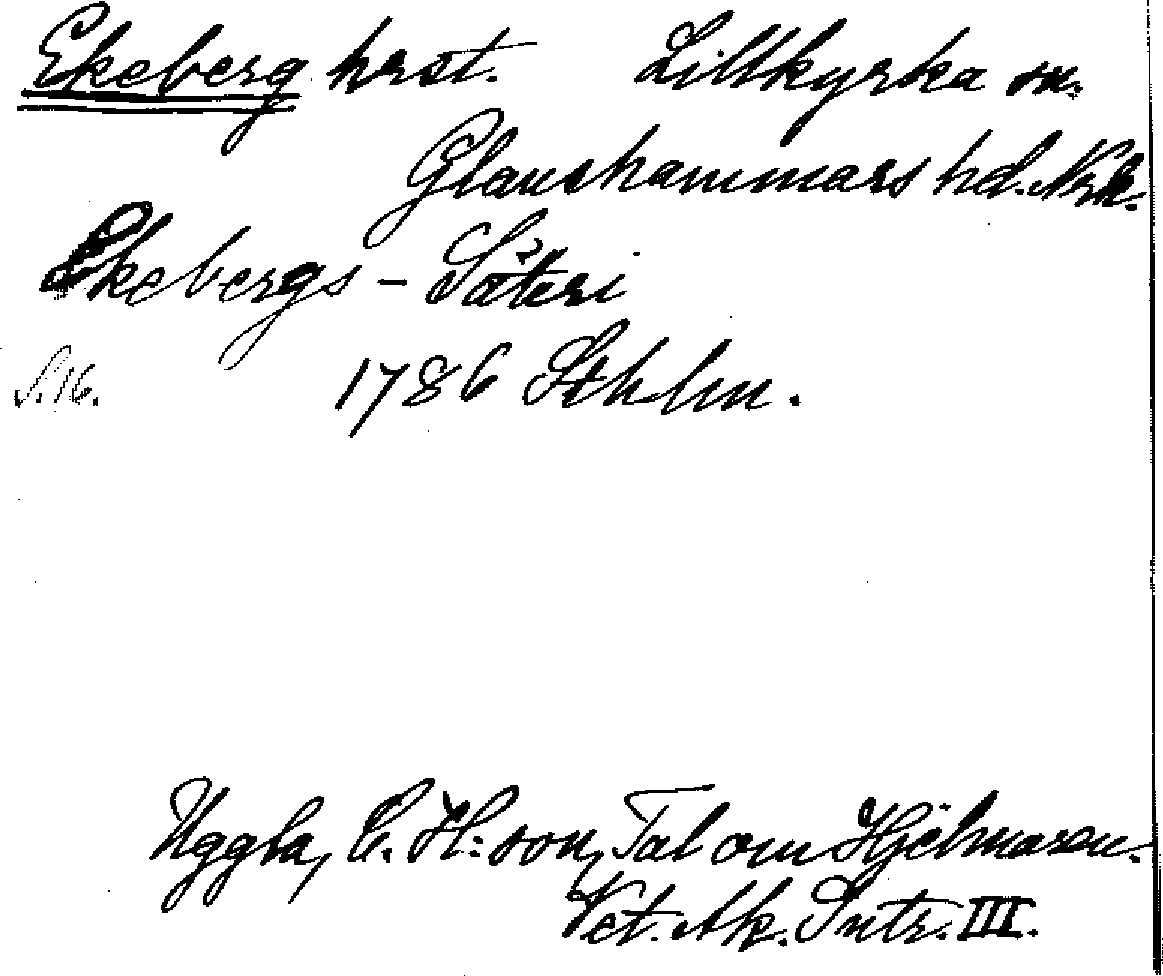 Ekeberg hrst. Lillkyrka sn.
Glanshammars hd. Nrk.
Ekebergs-Säteri
S. 16. 1786 Sthlm.
Uggla, C. H:son, Tal om Hjelmaren.
Vet. Ak. Intr. III.